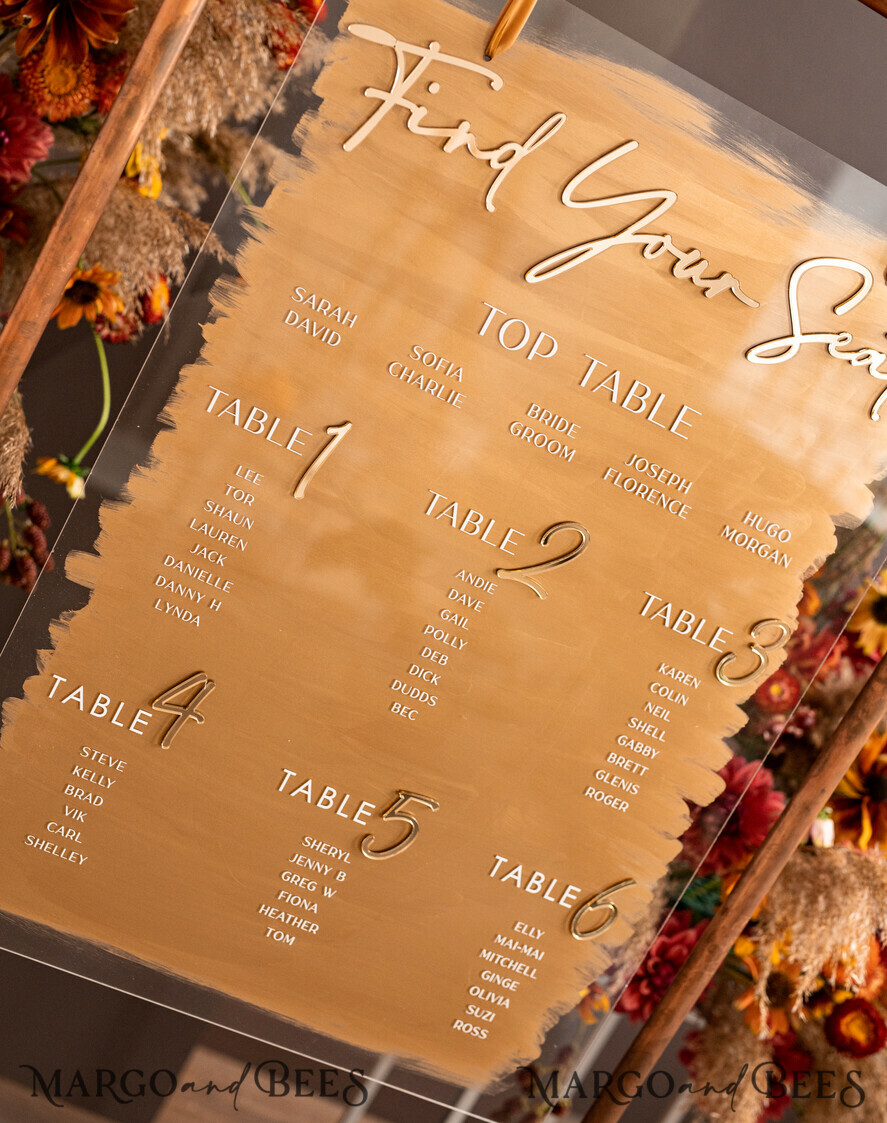 Find Your Seat
TOP TABLE
SARAH
DAVID
SOFIA
CHARLIE
BRIDE
GROOM
JOSEPH
FLORENCE
HUGO
MORGAN
TABLE 1
LEE
TOR
SHAUN
LAUREN
JACK
DANIELLE
DANNY H
LYNDA
TABLE 2
ANDIE
DAVE
GAIL
POLLY
DEB
DICK
DUDDS
BEC
TABLE 3
KAREN
COLIN
NEIL
SHELL
GABBY
BRETT
GLENIS
ROGER
TABLE 4
STEVE
KELLY
BRAD
VIK
CARL
SHELLEY
TABLE 5
SHERYL
JENNY B
GREG W
FIONA
HEATHER
TOM
TABLE 6
ELLY
MAI-MAI
MITCHELL
GINGE
OLIVIA
SUZI
ROSS
MARGO and BEES
MARGO and BEES